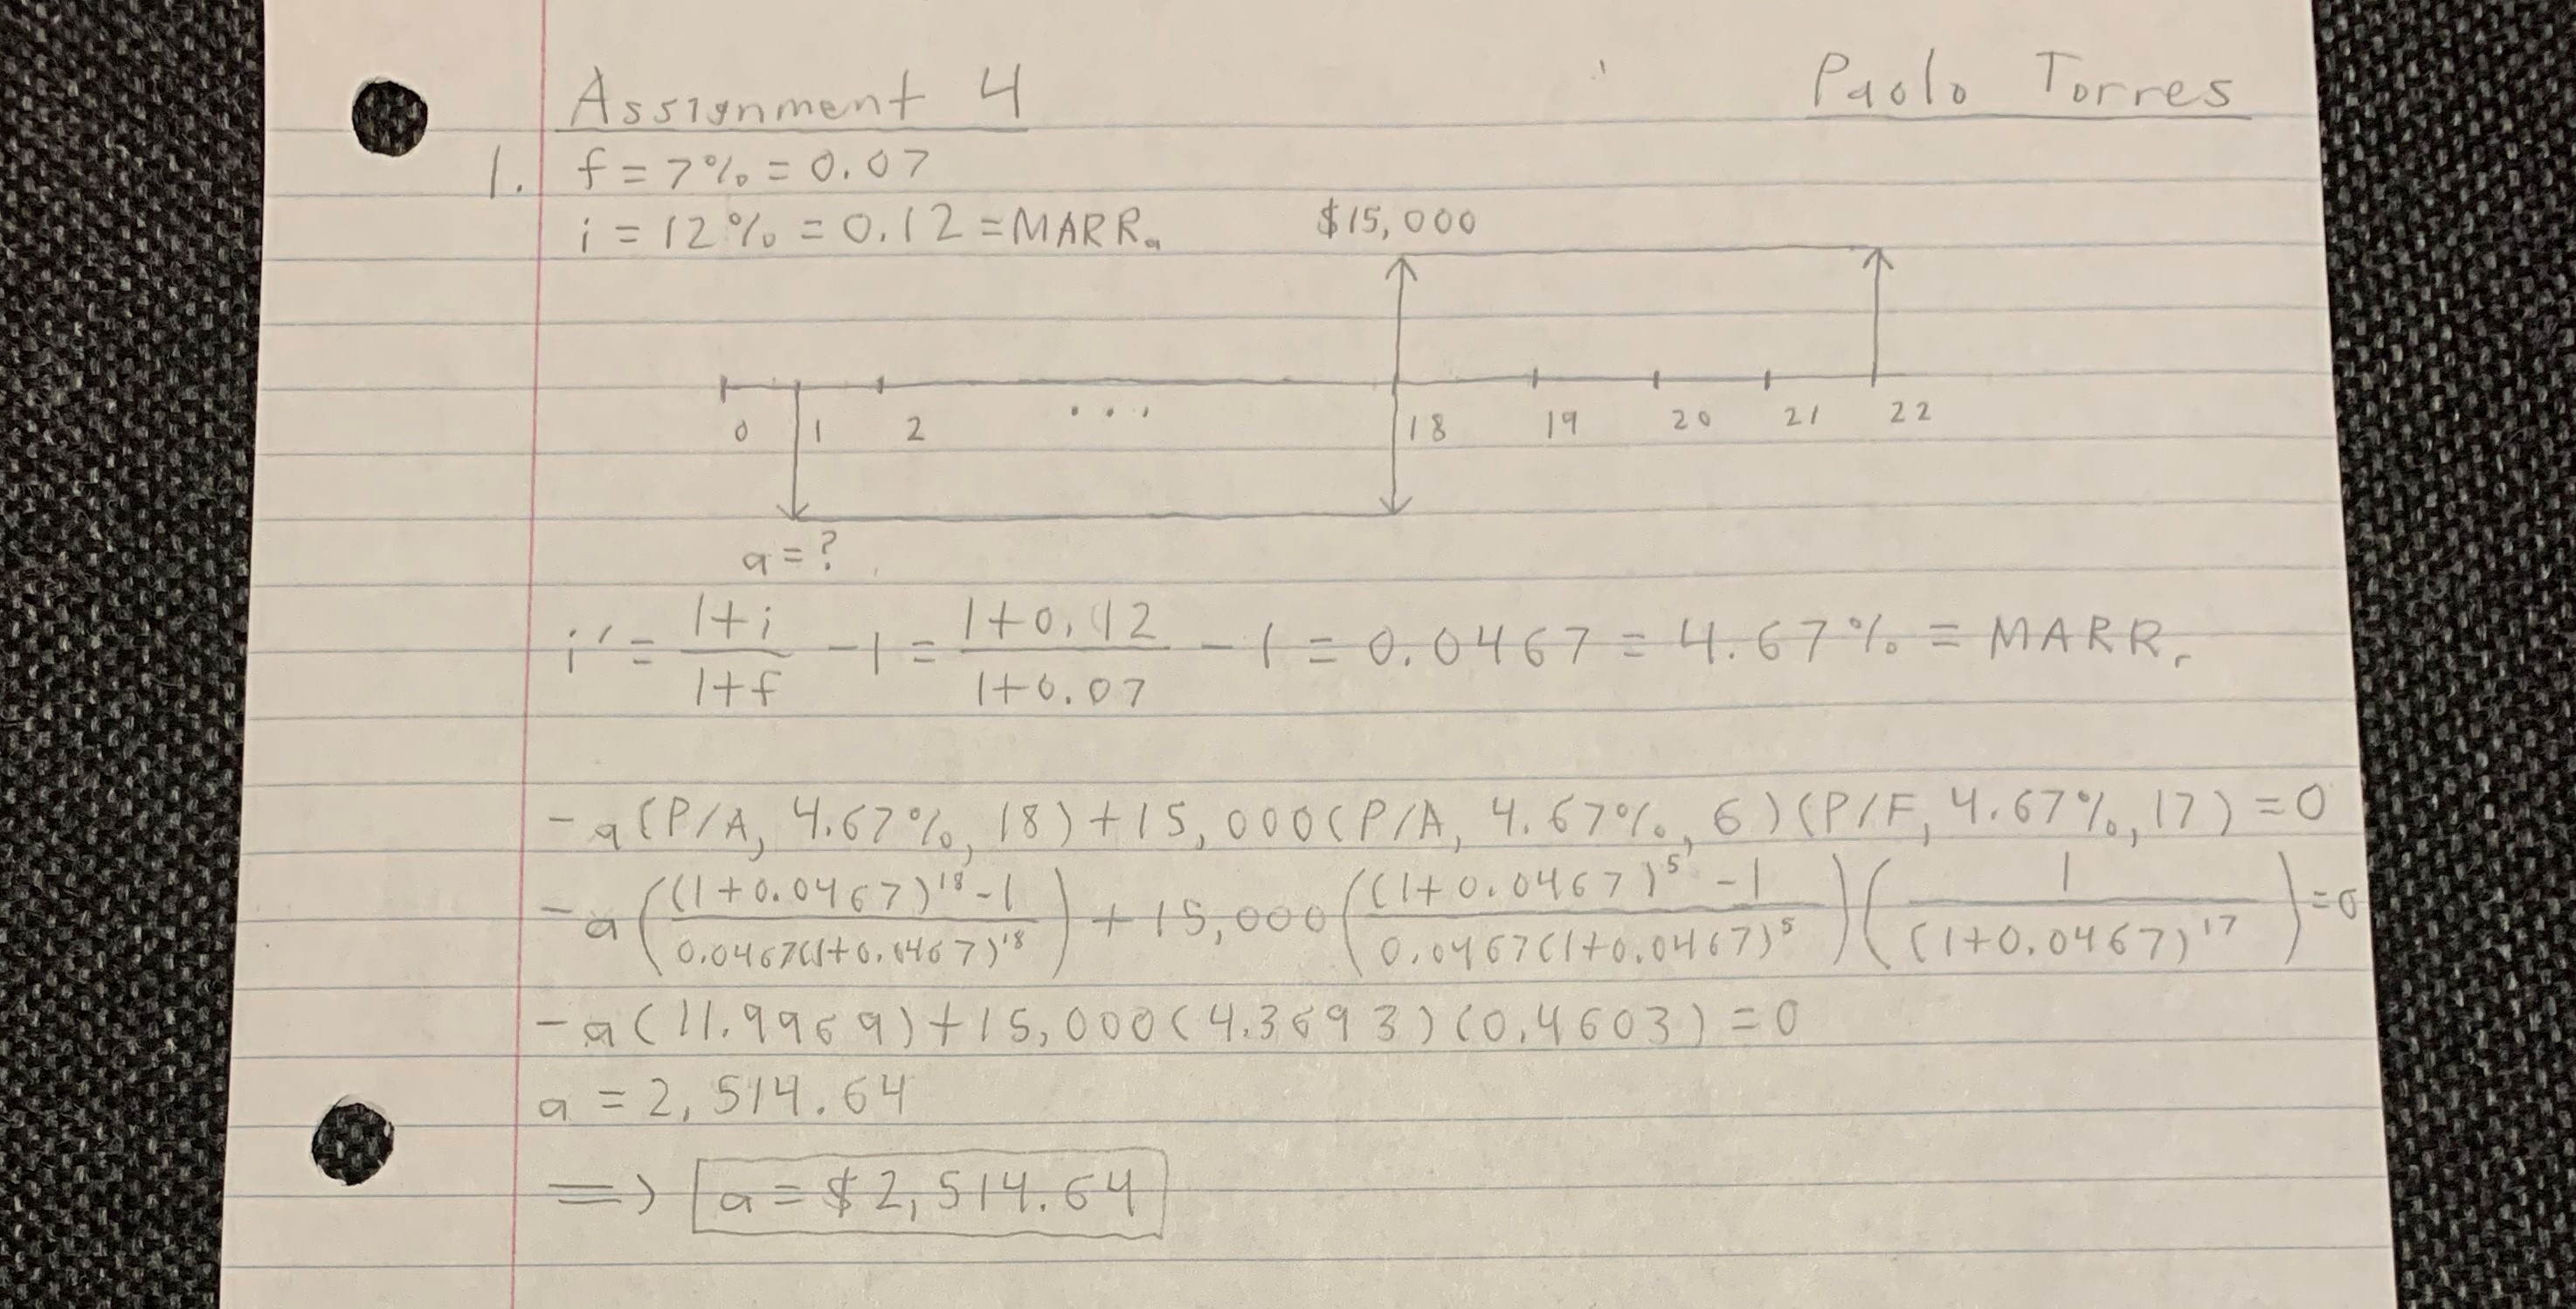 Assignment 4
Paolo Torres
1. f = 7% = 0.07
i = 12% = 0.12 = MARRₐ
$15,000
0 1 2 ... 18 19 20 21 22
a = ?
i' = (1+i)/(1+f) - 1 = (1+0.12)/(1+0.07) - 1 = 0.0467 = 4.67% = MARRᵣ
-a(P/A, 4.67%, 18) + 15,000(P/A, 4.67%, 6)(P/F, 4.67%, 17) = 0
-a(((1+0.0467)¹⁸ - 1)/(0.0467(1+0.0467)¹⁸)) + 15,000(((1+0.0467)⁵ - 1)/(0.0467(1+0.0467)⁵))(1/(1+0.0467)¹⁷) = 0
-a(11.9969) + 15,000(4.3693)(0.4603) = 0
a = 2,514.64
=> a = $2,514.64